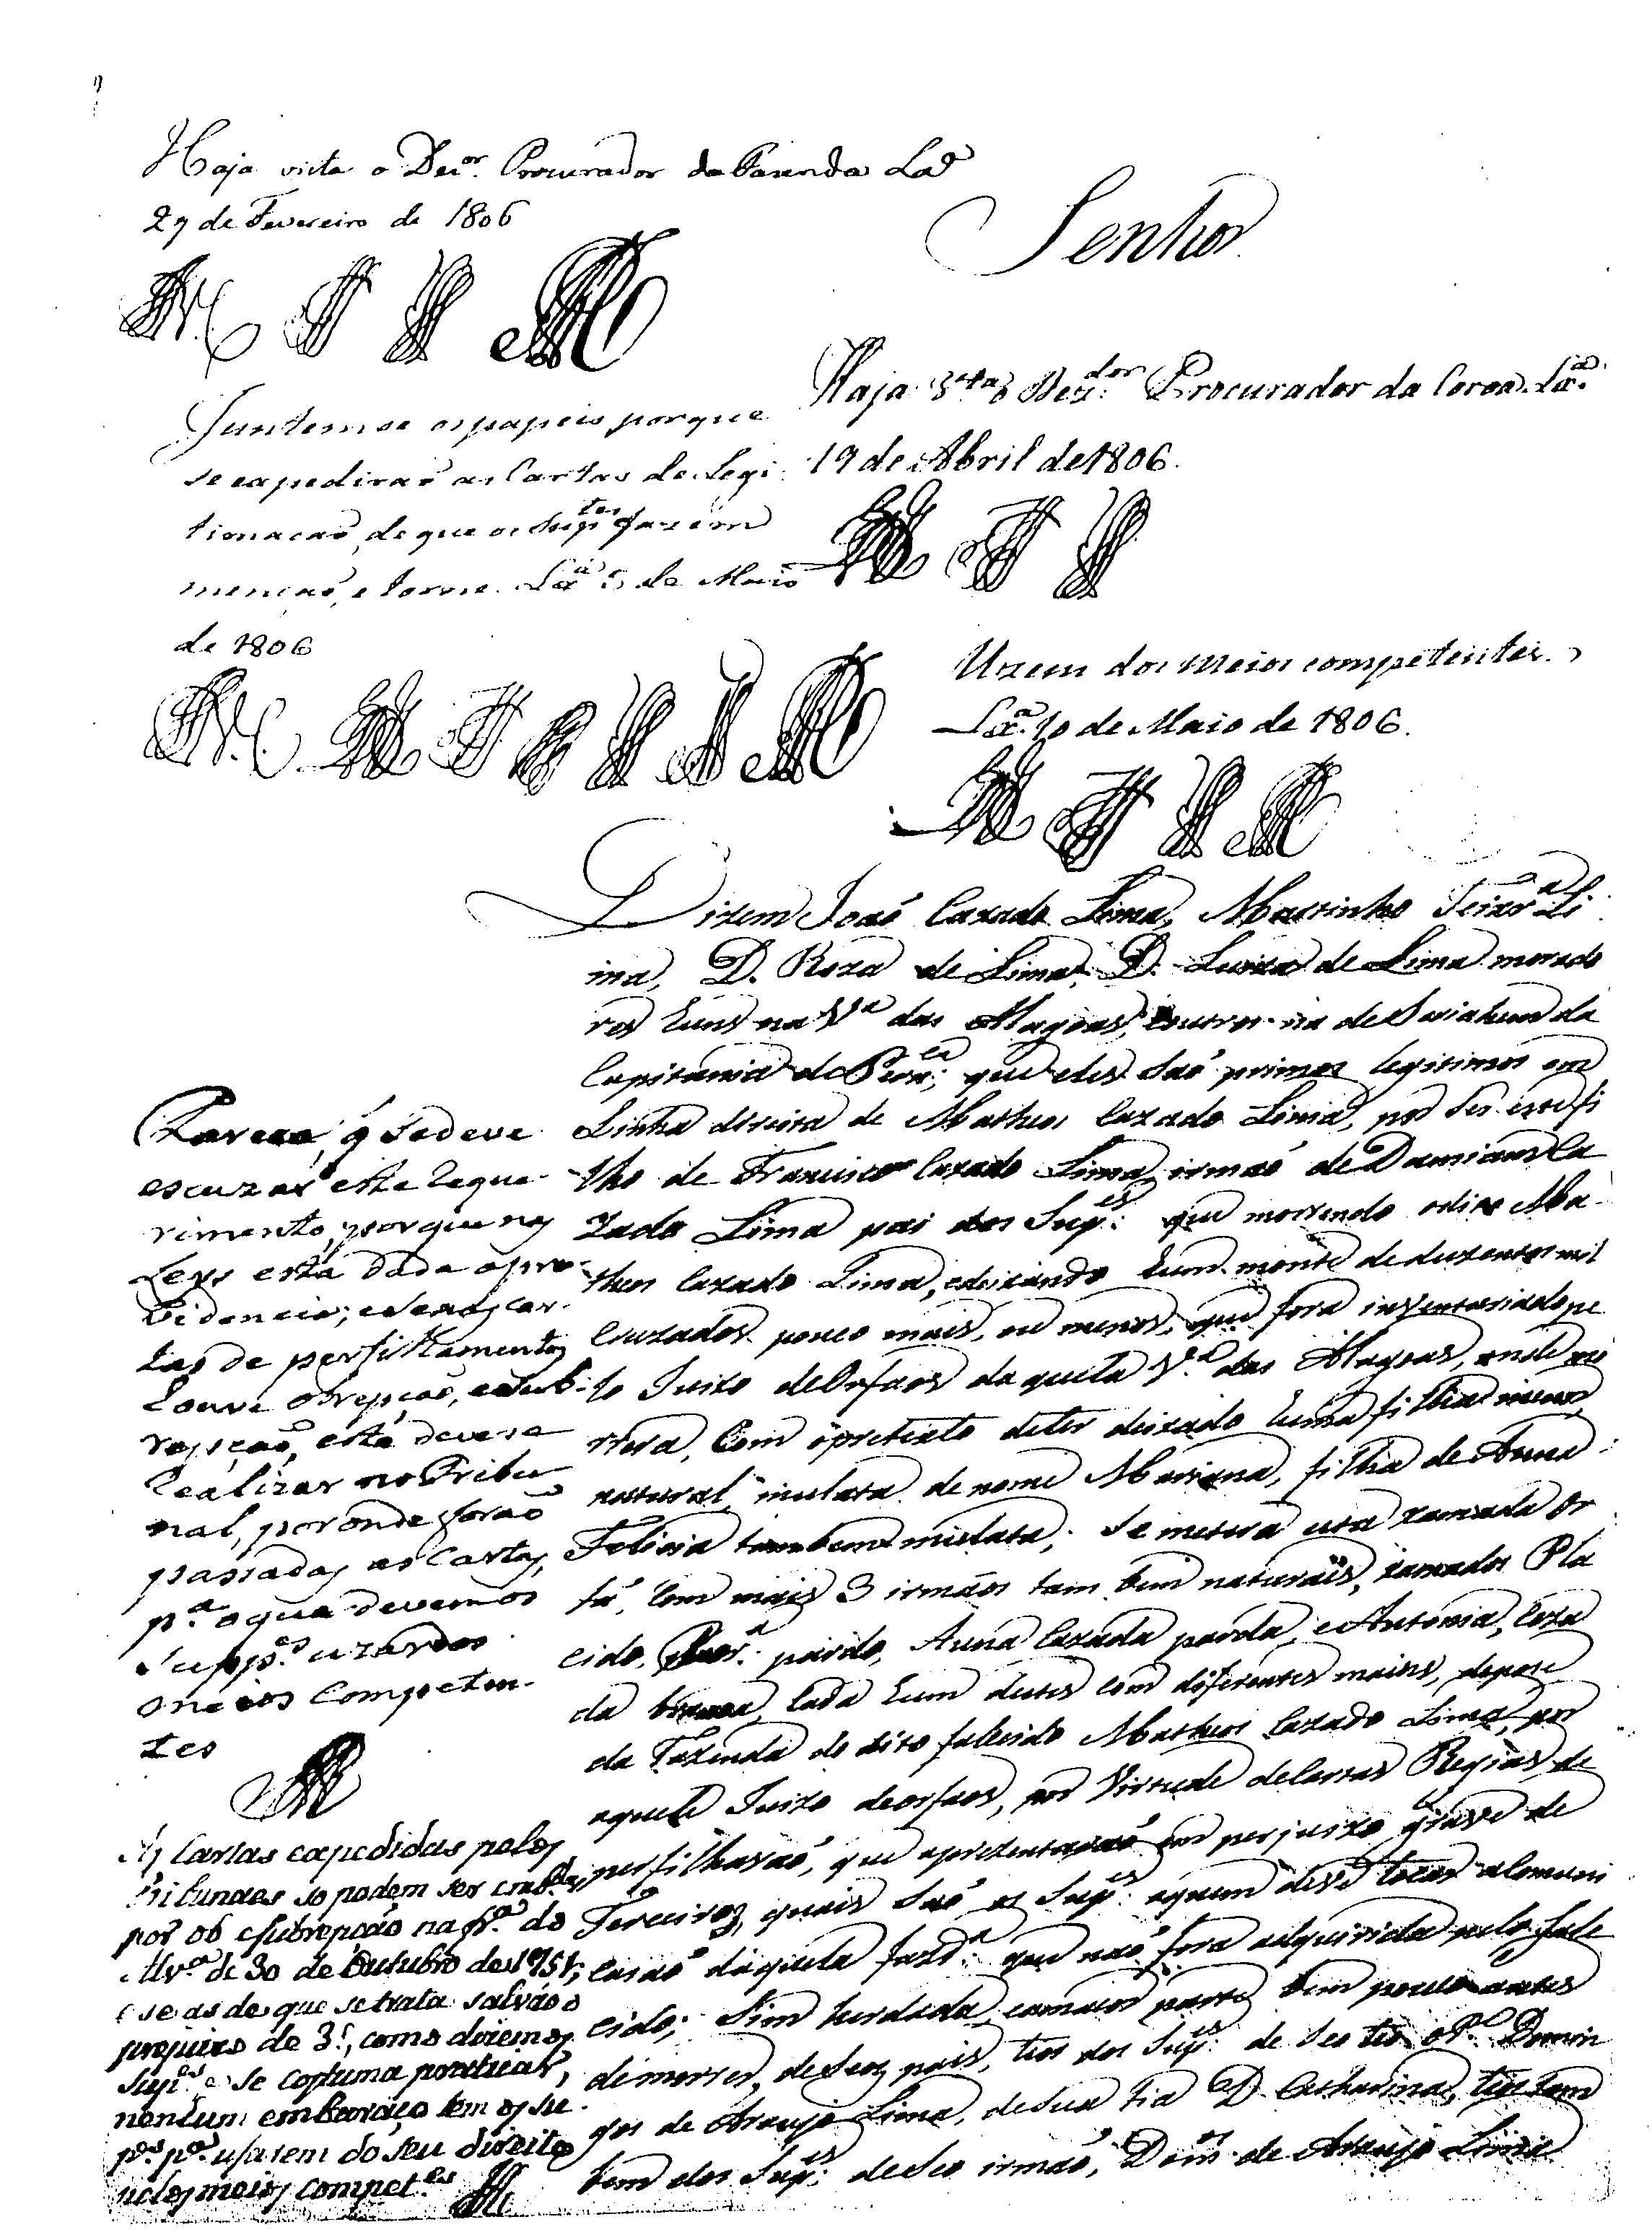 Haja vista o Dez.or Procurador da Fazenda Lx.a
27 de Fevereiro de 1806
Senhor
Haja vta o Dez.dor Procurador da Coroa. Lx.a
19 de Abril de 1806.
Juntemse os papeis porque
se expedirão as Cartas de Legi
timação, de que os Supp.tes fazem
menção, e torne. Lx.a 5 de Maio
de 1806
Uzem dos meios competentes.
Lx.a 10 de Maio de 1806.
Dizem João Cazado Lima, Martinho Teixr.a Li
ma, D. Roza de Lima, D. Luiza de Lima morado
res huns na V.a das Alagoas, e outros na de da
Capitania de Per.co; que eles são primos legitimos em
Linha direita de Matheus Cazado Lima, por ser este fi
lho de Francisco Cazado Lima, irmão de Damião Ca
zado Lima pai dos Sup.es: que morrendo o dito Ma
theus Cazado Lima, e deixando hum monte de duzentos mil
Cruzados pouco mais, ou menos, que fora inventariado pe
lo Juizo de Orfaos daquela V.a das Alagoas, onde mo
rrera, Com o pretexto de ter deixado huma filha menor
natural, mulata de nome Mariana, filha de Anna
Felicia tambem mulata; se metera esta xamada Or
fã, Com mais 3 irmãos tam bem naturaes, xamados Pla
cido, pardo, Anna Cazada parda, e Antonia, Caza
da branca, Cada hum destes com diferentes mains, de posse
da Fazenda do dito falecido Matheus Cazado Lima, por
aquele Juizo de orfaos, por Virtude de Cartas Regias de
perfilhasão, que aprezentarão em perjuizo grave de
Terceiros, quais são os Sup.es: aquem deve tocar a
daquela fazd.a que não fora adquirida pelo fale
cido; Sim herdada, e a maior parte bem pouco antes
de morrer, de seos pais, tios dos Sup.es de seo tio o P.e Domin
gos de Araujo Lima, de sua tia D. Catharina, tios tam
bem dos Sup.es: de seo irmão, Dom.os de Araujo Lima
Parece, q̃ se deve
escuzar este reque
rimento, porque nas
Leys está dada a pro
videncia; e se nas car
tas de perfilhamentos
houve obrepção, e sub
repção, esta deve se
realizar no Tribu
nal, por onde forão
passadas as Cartas,
p.a o que devem os
Supp.es uzar dos
meios Competen
tes
As Cartas expedidas pelos
Tribunaes so podem ser emb.das
por ob e subrepção na fr.a do
Alv.a de 30 de Outubro de 1751;
e se as de que se trata salvão o
prejuizo de 3.o, como dizem os
Sup.es e se costuma praticar,
nenhum embaraço tem os su
p.es p.a usarem do seu direito
pelos meios compet.es